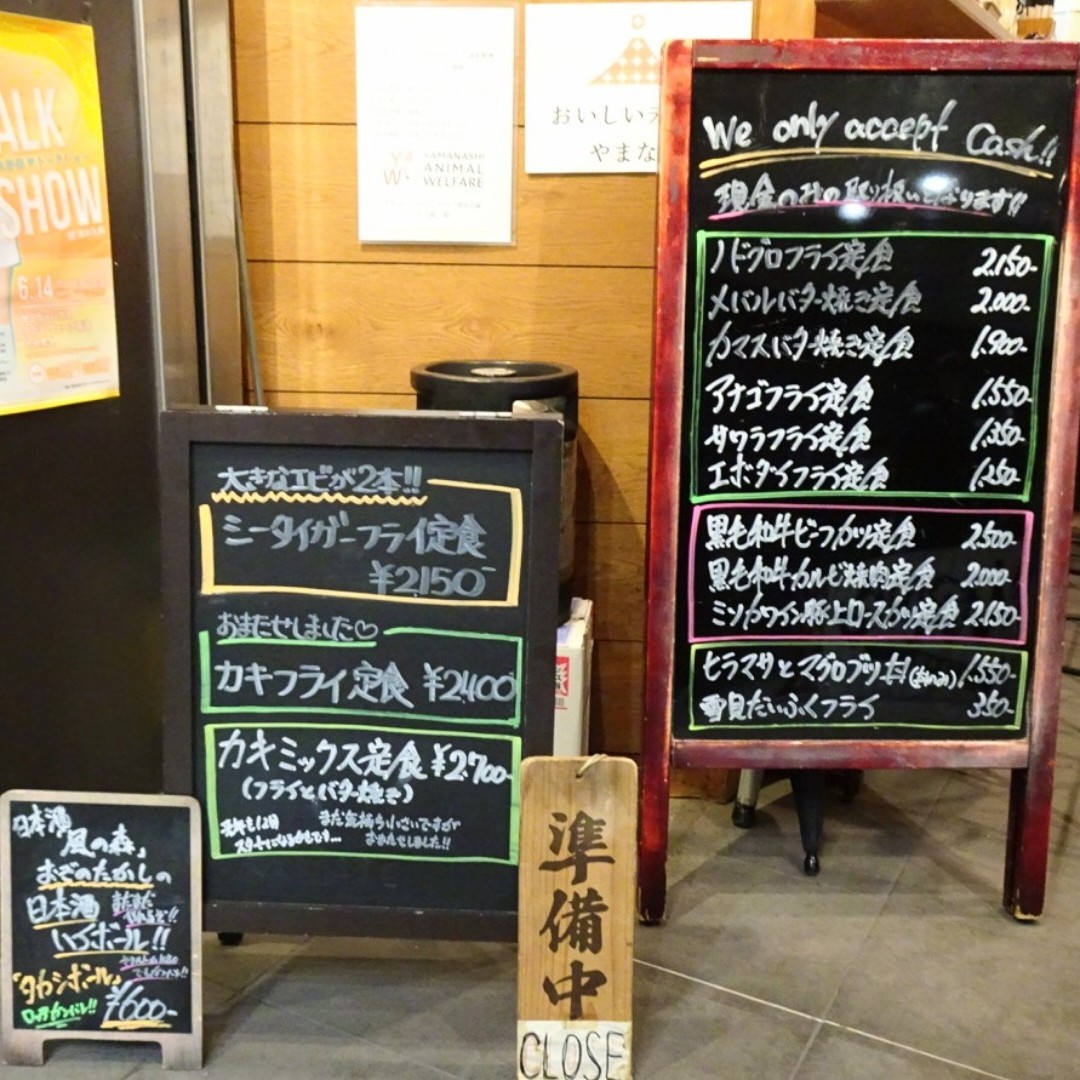 ALK
SHOW
6.14
YAMANASHI
ANIMAL
WELFARE
おいしい
やまな
We only accept Cash!!
現金のみの取り扱いとなります!!
ノドグロフライ定食 2.150-
メバルバター焼き定食 2.000-
カマスバター焼き定食 1.900-
アナゴフライ定食 1.550-
サワラフライ定食 1.350-
エボダイフライ定食 1.250-
黒毛和牛ビーフカツ定食 2.500-
黒毛和牛カルビ焼肉定食 2.000-
ミソカツワイン豚上ロースカツ定食 2.150-
ヒラマサとマグロブツ丼 1.550-
雪見だいふくフライ 350-
大きなエビが2本!!
ミータイガーフライ定食
¥2.150-
おまたせしました♡
カキフライ定食 ¥2.400
カキミックス定食 ¥2.700-
(フライとバター焼き)
まだ気持ち小さいですが
おまたせしました!!
日本酒
風の森」
おぞのたかしの
日本酒
ハイボール!!
「タカシボール」
¥600-
準備中
CLOSE